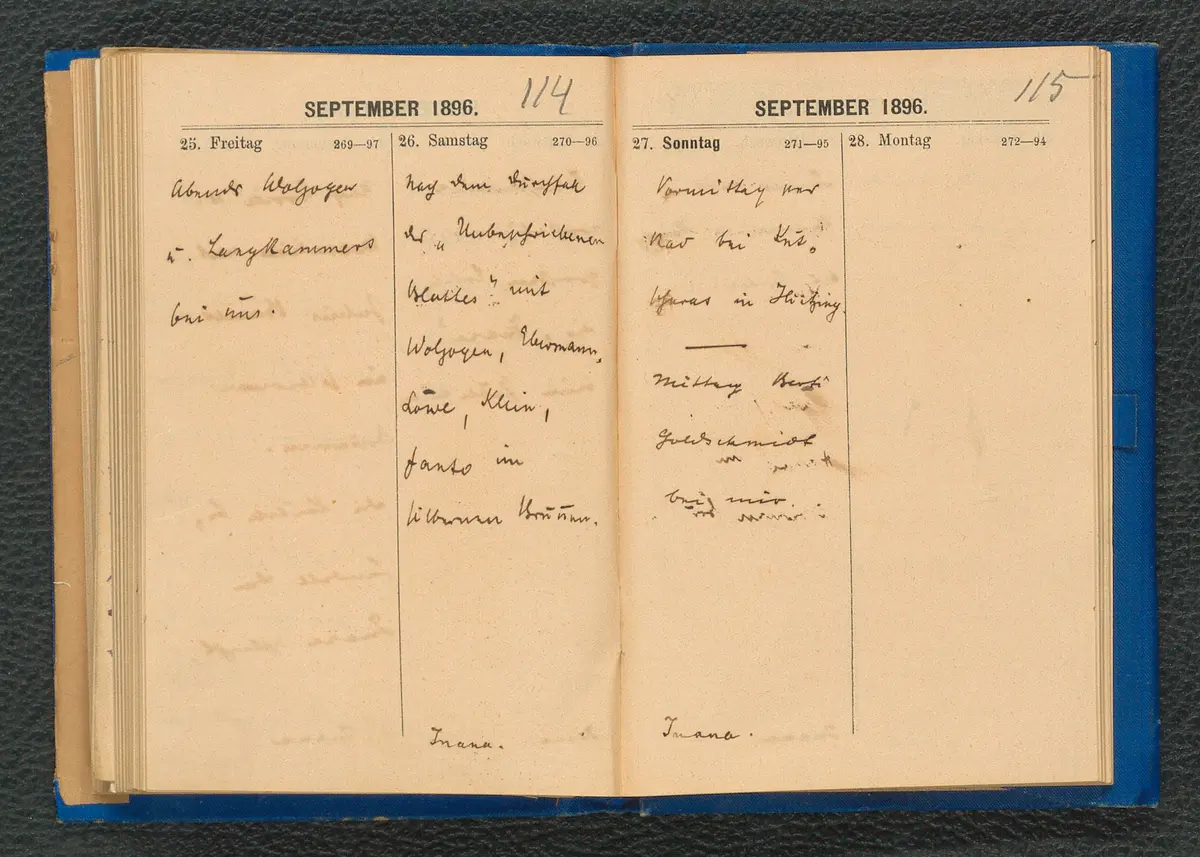 114
SEPTEMBER 1896.
25. Freitag 269—97
Abends Wolzogen
u. Langkammers
bei uns.
26. Samstag 270—96
Nach dem Durchfall
des „Unbeschriebenen
Blattes" mit
Wolzogen, Ebermann,
Löwe, Klein,
Fanto im
silbernen Brunnen.
115
SEPTEMBER 1896.
27. Sonntag 271—95
Vormittag per
Rad bei
in Hietzing.
Mittag
Goldschmidt
bei mir
28. Montag 272—94